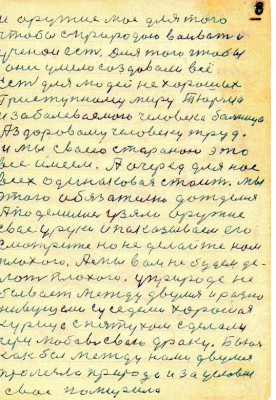 8
и оружие мое для того
чтобы с природою воевать и
ученое ест. Для того чтобы
они умело создовали всё
Ест для людей не хороших
Преступному миру Тюрма
и заболеваемого человека болница
А здоровому человеку труд.
и мы своею стараною это
все имеем. А очеред для нас
всех одинаковая стоит. мы
этого обязательно дождемся
А поделимся узяли оружие
свае у руки и показываем его
смотрите но не делайте нам
плохого. А мы вам не будем де-
лать плохого. у природе не
бывает между двумя и разно
имущими суседями хорошая
курица с петухом сделали
через любовь свою драку. Была
как бы между нами двумя
пролегла природа и за условия
свае помирила